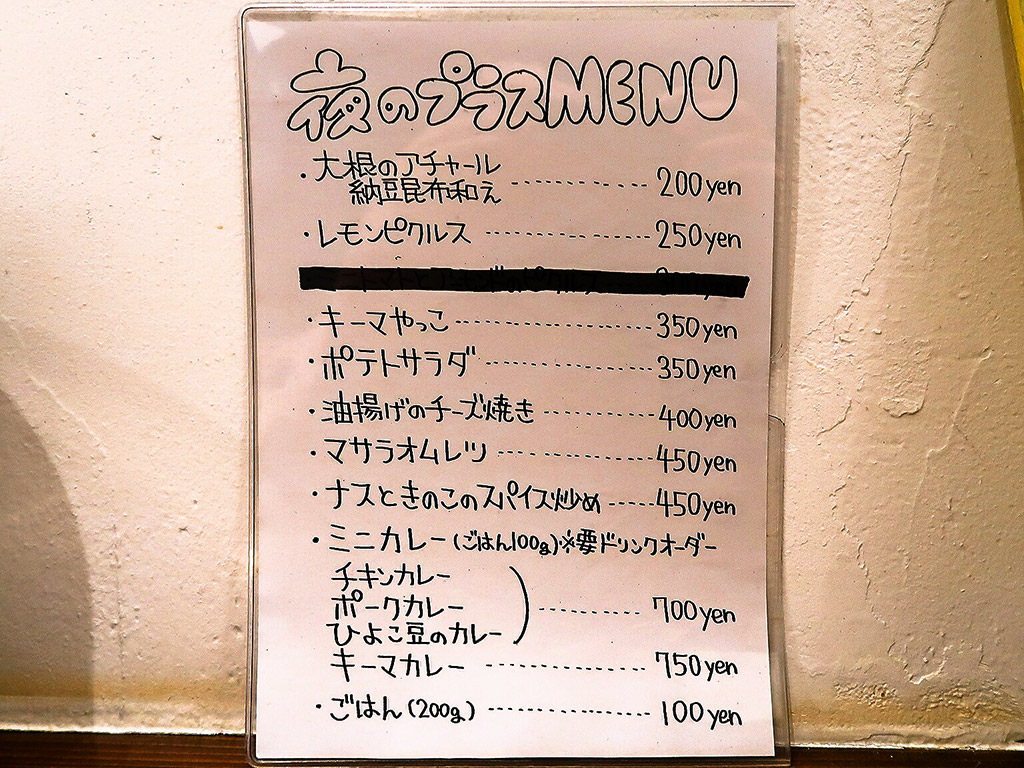 夜のプラスMENU
・大根のアチャール
納豆昆布和え ------------ 200yen
・レモンピクルス ------------ 250yen
・キーマやっこ ------------ 350yen
・ポテトサラダ ------------ 350yen
・油揚げのチーズ焼き ------------ 400yen
・マサラオムレツ ------------ 450yen
・ナスときのこのスパイス炒め ----- 450yen
・ミニカレー(ごはん100g)※要ドリンクオーダー
チキンカレー
ポークカレー ------------ 700yen
ひよこ豆のカレー
キーマカレー ------------ 750yen
・ごはん(200g) ------------ 100yen